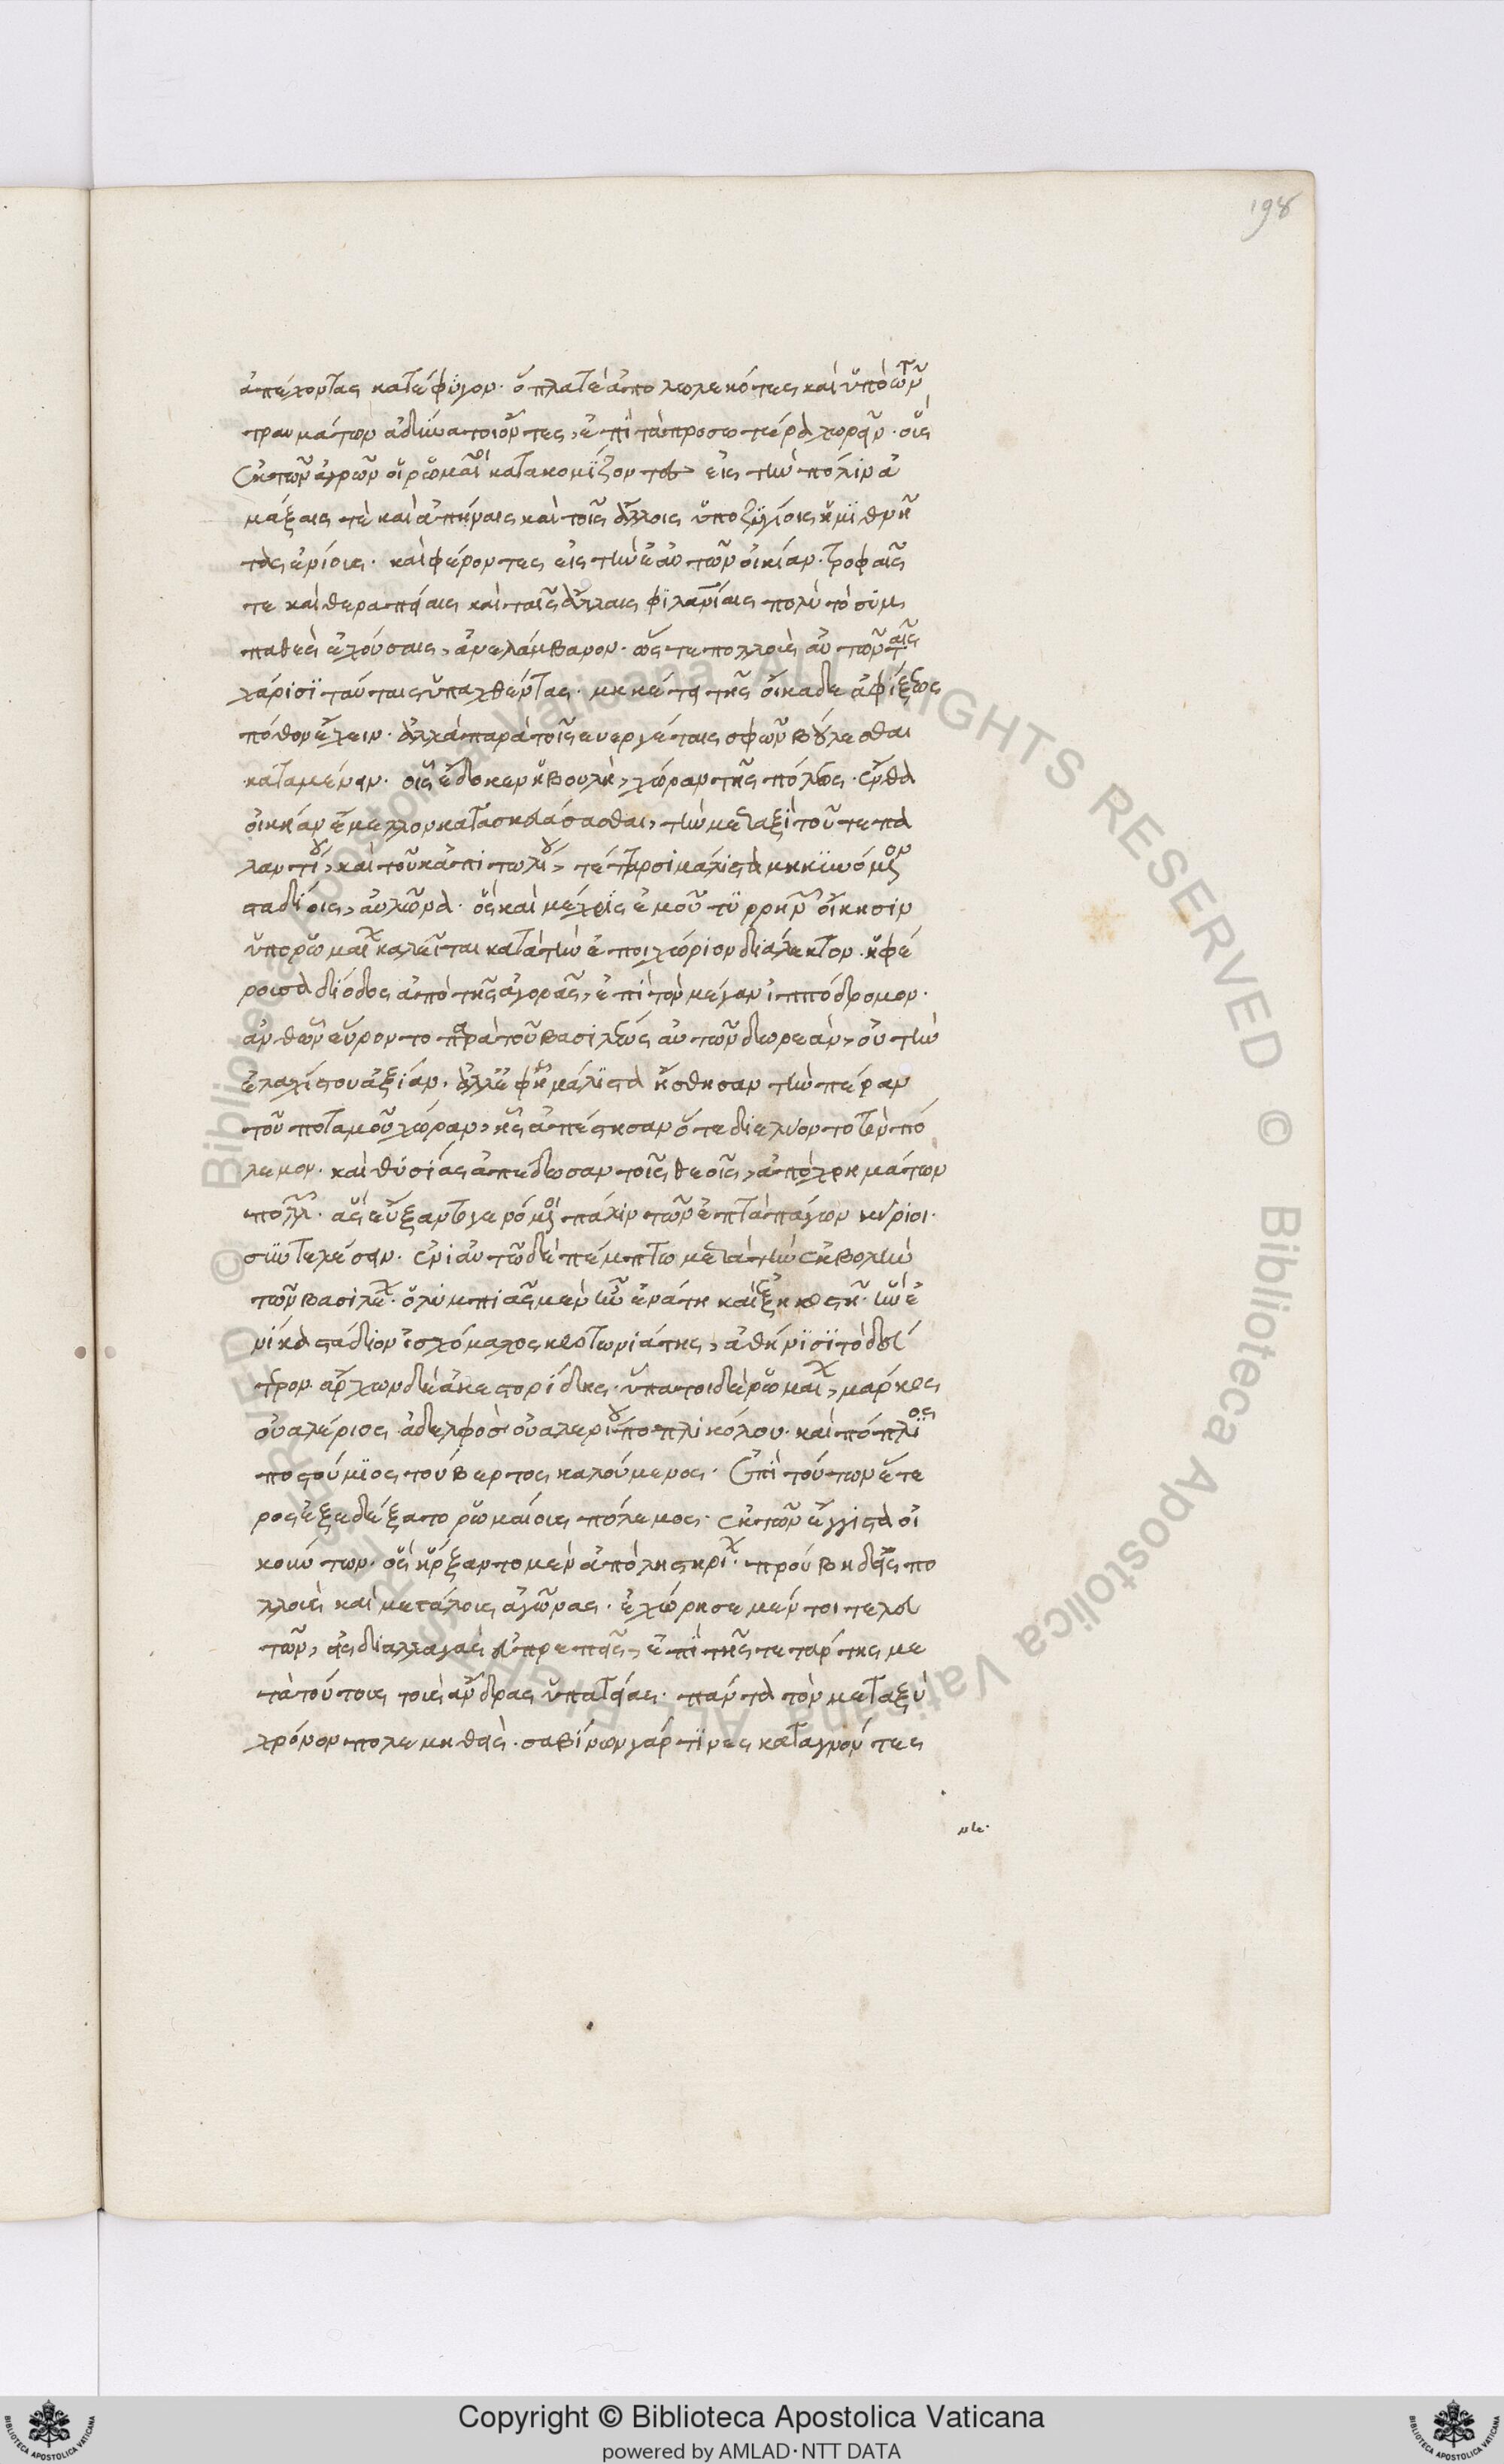 198
ἀπέχοντας κατέφυγον· ὅπλά τε ἀπολωλεκότες καὶ ὑπὸ τῶν
τραυμάτων ἀδυνατοιοῦντες, ἐπὶ τὰ προσωτέρω χωρεῖν· οὓς
ἐκ τῶν ἀγρῶν οἱ ῥωμαῖοι κατακομίζοντες εἰς τὴν πόλιν ἁ
μάξαις τὲ καὶ ἀπήναις καὶ τοῖς ἄλλοις ὑποζυγίοις ἡμιθνῆ
τας ἐνίους· καὶ φέροντες εἰς τὴν ἑαυτῶν οἰκίαν· τροφαῖς
τε καὶ θεραπείαις καὶ ταῖς ἄλλαις φιλανίαις πολὺ τὸ συμ
παθὲς ἐχούσαις, ἀνελάμβανον· ὥστε πολλοὺς αὐτῶν ταῖς
χάρισι ταύταις ὑπαχθέντας· μηκέτι τῆς οἴκαδε ἀφίξεως
πόθον ἔχειν· ἀλλὰ παρὰ τοῖς ευεργέταις σφῶν βούλεσθαι
καταμένειν· οἷς ἔδωκεν ἡ βουλὴ, χώραν τῆς πόλεως· ἔνθα
οἰκήαν ἔμελλον κατασκευάσασθαι, τὴν μεταξὺ τοῦ τε πα
λαντίου, καὶ τοῦ καπιτωλίου, τέτταρσι μάλιστα μηκυνόμενον
σταδίοις, αὐλῶνα· ὃς καὶ μέχρις ἐμοῦ τυρρηνῶν οἴκησιν
ὑπὸ ῥωμαίων καλεῖται κατὰ τὴν ἐπιχώριον διάλεκτον· ἡ φέ
ρουσα δίοδος ἀπὸ τῆς ἀγορᾶς, ἐπὶ τὸν μέγαν ἱππόδρομον·
ἀνθ ὧν εὕροντο παρὰ τοῦ βασιλέως αὐτῶν δωρεὰν, οὐ τὴν
ἐλαχίστου ἀξίαν· ἀλλ ἐφ ᾗ μάλιστα ἥσθησαν τὴν πέραν
τοῦ ποταμοῦ χώραν, ἧς ἀπέστησαν ὅτε διελύοντο τὸν πό
λεμον· καὶ θυσίας ἀπέδωσαν τοῖς θεοῖς, ἀπὸ χρημάτων
πολλῶν· ἃς εὔξαντο γενόμενοι πάλιν τῶν ἑπτὰ πάγων κύριοι·
συντελέσειν· ἐνιαυτῶ δὲ πέμπτω μετὰ τὴν ἐκβολὴν
τῶν βασιλέων· ὀλυμπιὰς μὲν ἦν ἐνάτη καὶ ἑξηκοστὴ· ἣν ἐ
νίκα στάδιον ἰσχόμαχος κροτωνιάτης, ἀθήνισι τὸ δεύ
τερον ἄρχων δὲ ἀκεστορίδης· ὕπατοι δὲ ῥωμαίων, μάρκος
οὐαλέριος ἀδελφὸσ οὐαλερίου ποπλικόλου· καὶ πόπλιος
ποστούμιος τούβερτος καλούμενος· Ἐπὶ τούτων ἕτε
ρος ἐξεδέξατο ῥωμαίους πόλεμος· ἐκ τῶν ἔγγιστα οἰ
κούντων· ὃς ἤρξαντο μὲν ἀπὸ ληστηρίων· προύβη δ εἰς πο
λλοὺς καὶ μετάλους ἀγῶνας· ἐχώρησε μέντοι τελευ
τῶν, εἰς διαλλαγὰς εὐπρεπεῖς, ἐπὶ τῆς τετάρτης με
τὰ τούτους τοὺς ἄνδρας ὑπατείας· πάντα τὸν μεταξὺ
χρόνον πολεμηθεὶς· σαβίνων γάρ τινες καταγνόντες